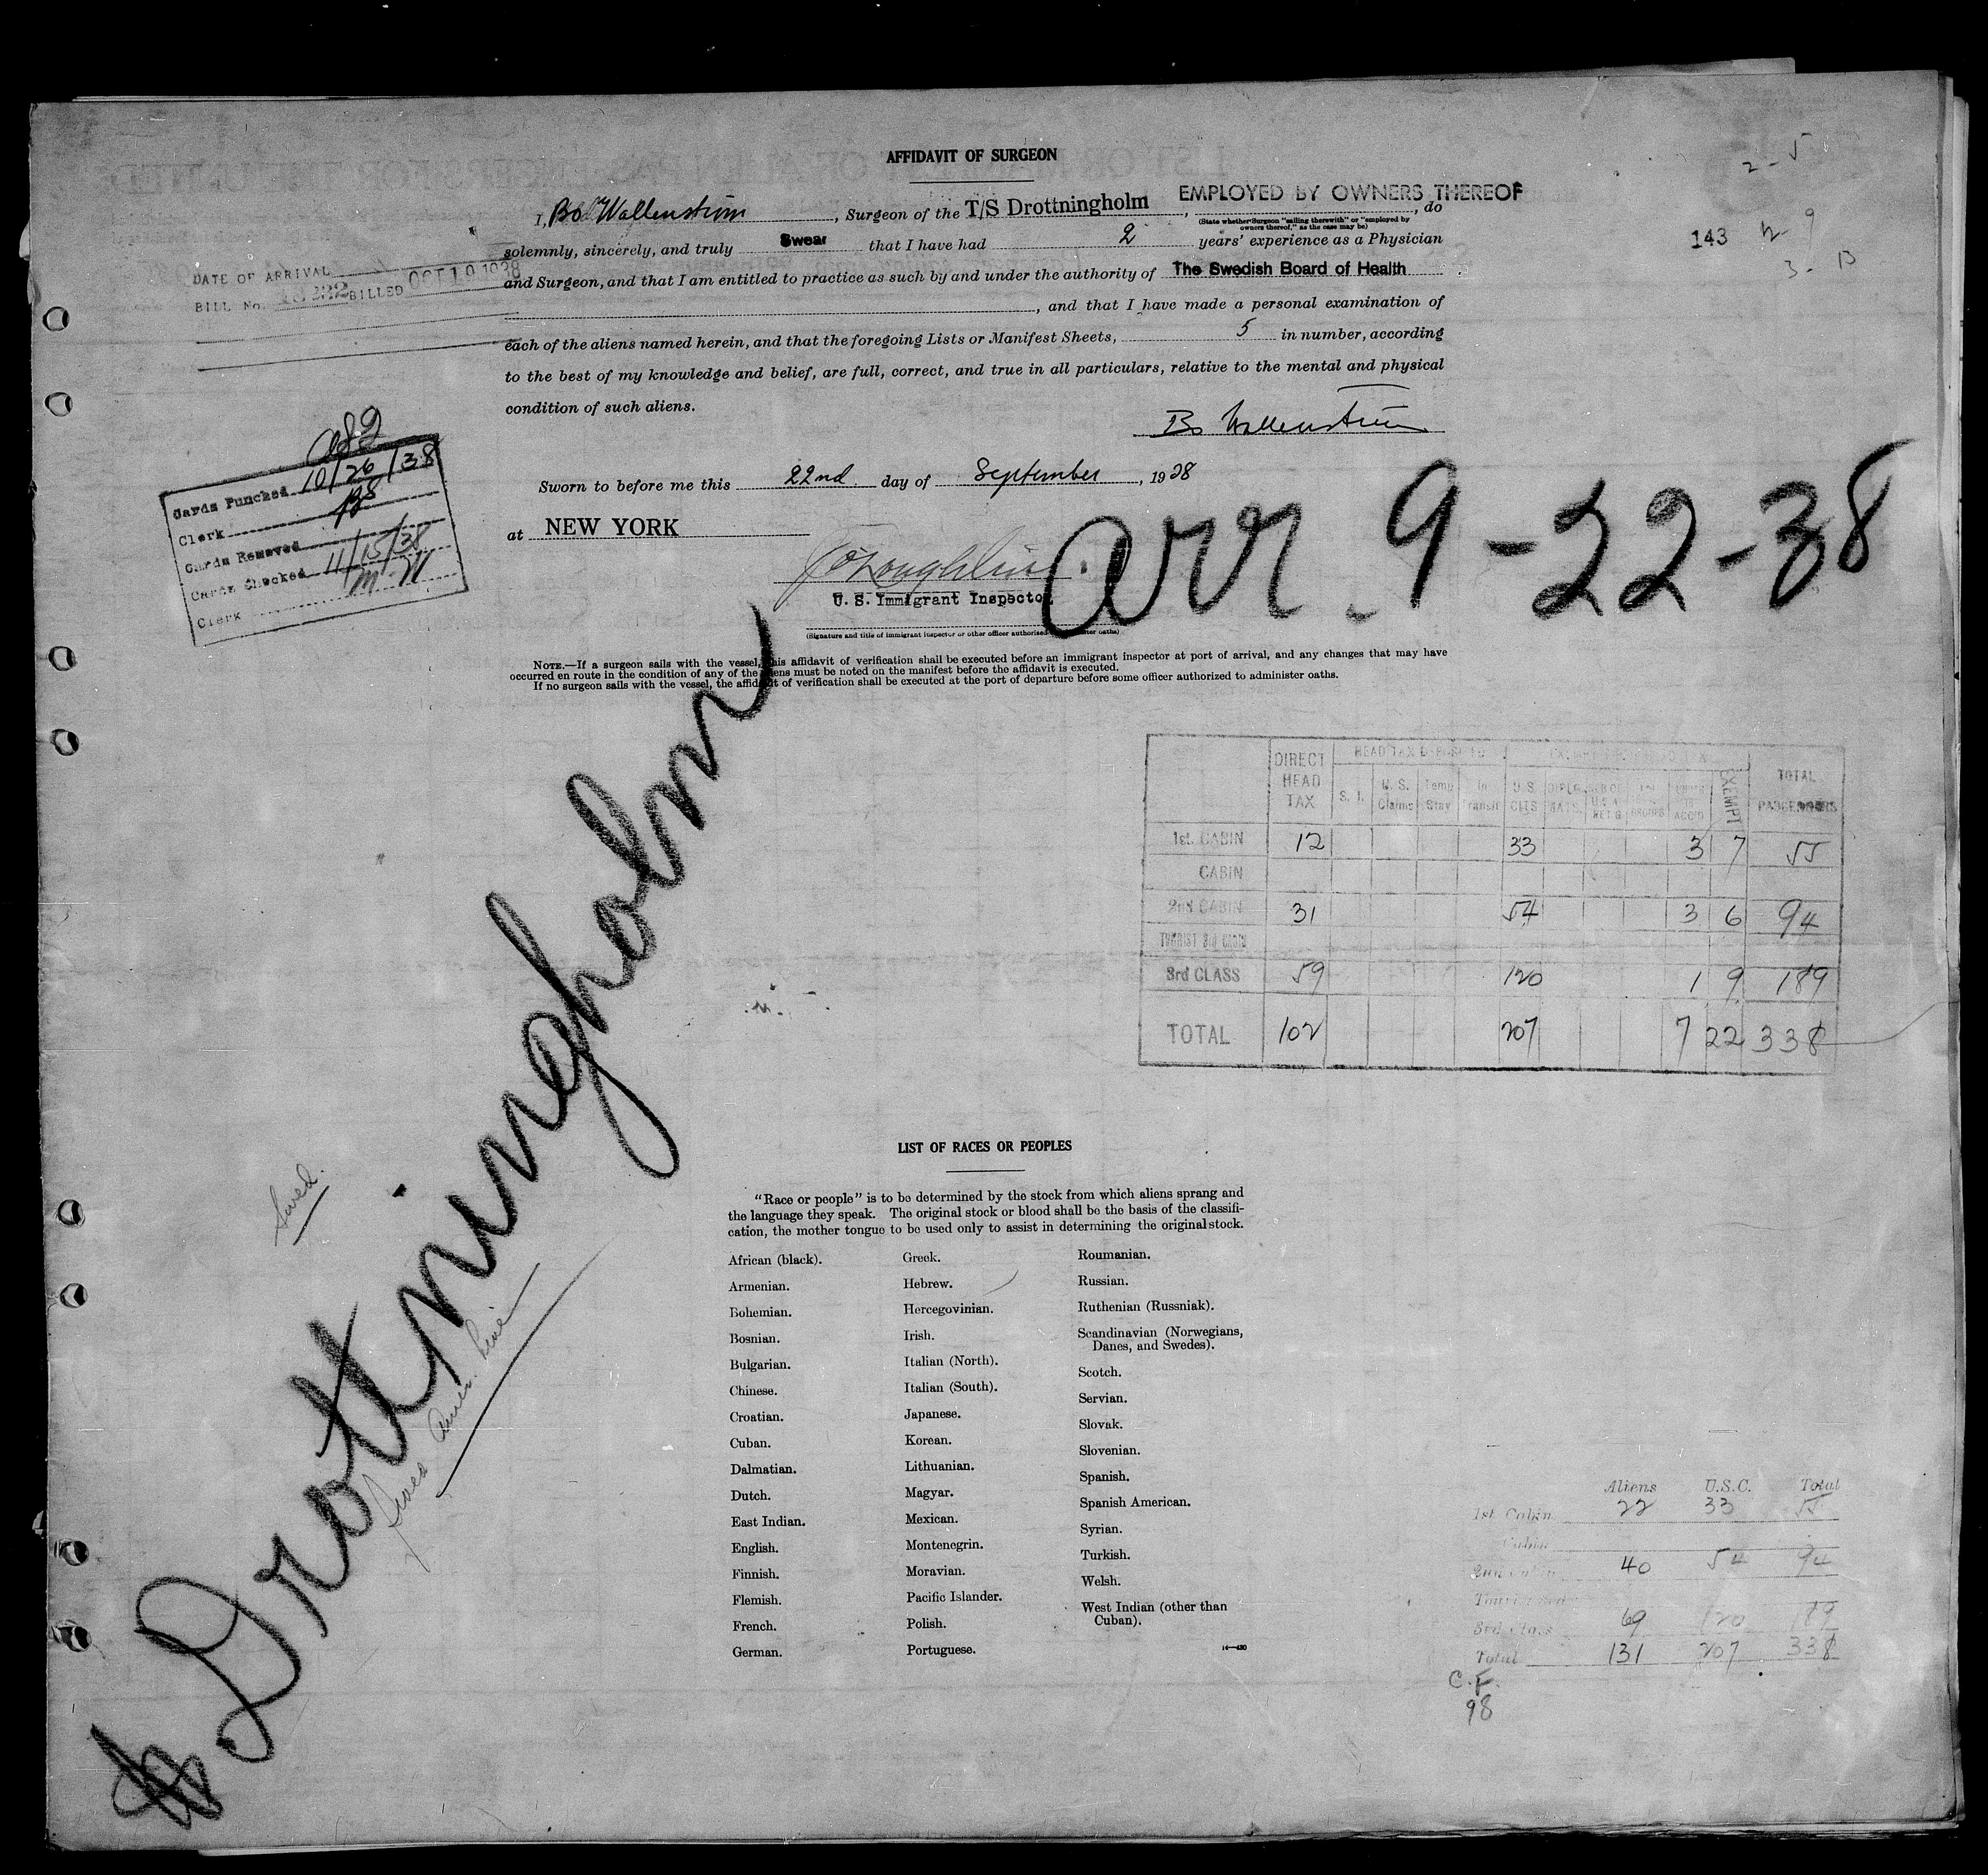 AFFIDAVIT OF SURGEON
I, Bo Wallenström, Surgeon of the T/S Drottningholm, EMPLOYED BY OWNERS THEREOF, do
(State whether Surgeon "sailing therewith" or "employed by owners thereof," as the case may be)
solemnly, sincerely, and truly Swear that I have had 2 years' experience as a Physician
and Surgeon, and that I am entitled to practice as such by and under the authority of The Swedish Board of Health
, and that I have made a personal examination of
each of the aliens named herein, and that the foregoing Lists or Manifest Sheets, 5 in number, according
to the best of my knowledge and belief, are full, correct, and true in all particulars, relative to the mental and physical
condition of such aliens.
Bo Wallenström
Sworn to before me this 22nd day of September, 1938
at NEW YORK
J O'Loughlin
U. S. Immigrant Inspector
(Signature and title of immigrant inspector or other officer authorised ter oaths)
2-5
143
3- B
DATE OF ARRIVAL
BILL No. BILLED OCT 10 1938
Cards Punched 10/26/38
Clerk
Cards Removed
Cards Checked 11/15/38
Clerk M. W
arr. 9-22-38
NOTE.—If a surgeon sails with the vessel, this affidavit of verification shall be executed before an immigrant inspector at port of arrival, and any changes that may have
occurred en route in the condition of any of the aliens must be noted on the manifest before the affidavit is executed.
If no surgeon sails with the vessel, the affidavit of verification shall be executed at the port of departure before some officer authorized to administer oaths.
Drottningholm
Swed.
Swed Amer. Line
DIRECT HEAD TAX S. I. U. S. Claims Temp Stay In Transit U.S. CITS EXEMPT TOTAL PASSENGERS
1st CABIN 12 33 3 7 55
CABIN
2nd CABIN 31 54 3 6 94
TOURIST 3rd CABIN
3rd CLASS 59 120 1 9 189
TOTAL 102 207 7 22 338
LIST OF RACES OR PEOPLES
"Race or people" is to be determined by the stock from which aliens sprang and
the language they speak. The original stock or blood shall be the basis of the classifi-
cation, the mother tongue to be used only to assist in determining the original stock.
African (black).
Armenian.
Bohemian.
Bosnian.
Bulgarian.
Chinese.
Croatian.
Cuban.
Dalmatian.
Dutch.
East Indian.
English.
Finnish.
Flemish.
French.
German.
Greek.
Hebrew.
Hercegovinian.
Irish.
Italian (North).
Italian (South).
Japanese.
Korean.
Lithuanian.
Magyar.
Mexican.
Montenegrin.
Moravian.
Pacific Islander.
Polish.
Portuguese.
Roumanian.
Russian.
Ruthenian (Russniak).
Scandinavian (Norwegians,
Danes, and Swedes).
Scotch.
Servian.
Slovak.
Slovenian.
Spanish.
Spanish American.
Syrian.
Turkish.
Welsh.
West Indian (other than
Cuban).
14—430
Aliens U.S.C. Total
1st Cabin 22 33 55
Cabin
2nd Cabin 40 54 94
3rd Class 69 120 189
Total 131 207 338
C.F.
98